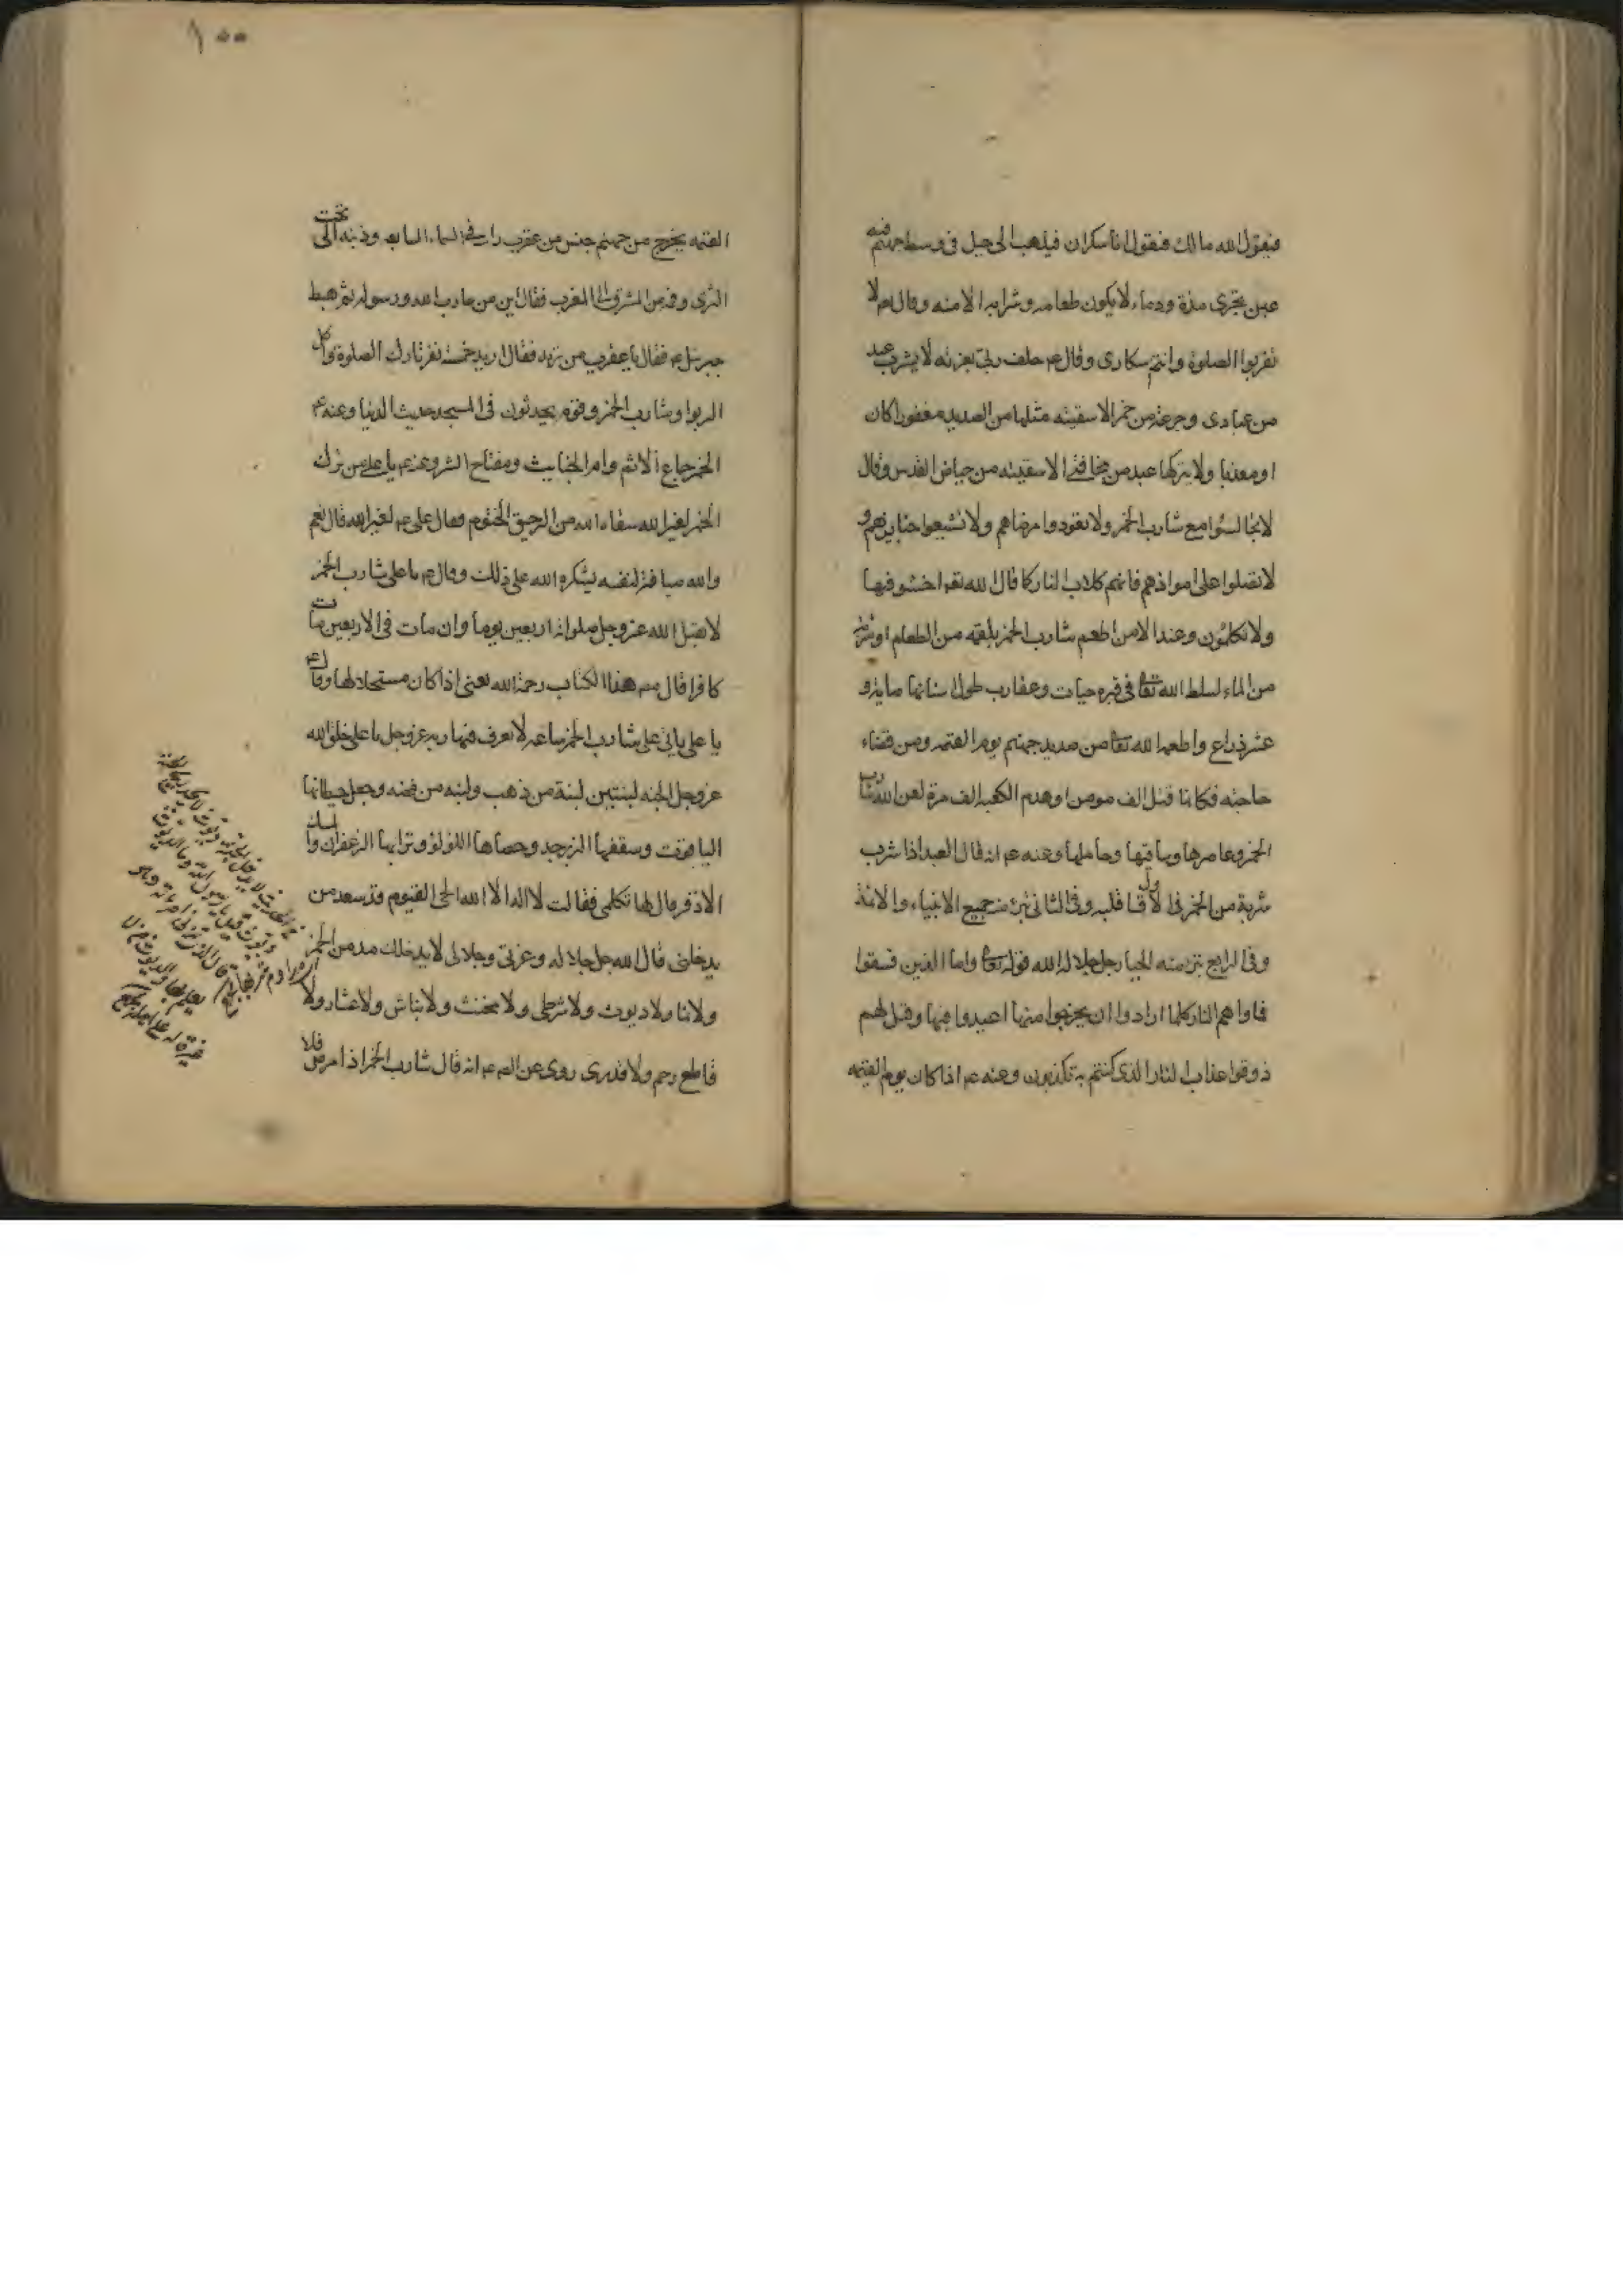 فيقول الله مالك فيقول انا سكران فيذهب الى جبل فى وسط جهنم فيه
عين تجرى مدة ودماء لا يكون طعامه وشرابه الا منه وقال عم لا
تقربوا الصلوة وانتم سكارى وقال عم حلف ربى بعزته لا يشرب عبد
من عبادى وجرعة من خمر الا سقيته مثلها من الصديد مغفورا كان
او معذبا ولا يتركها عبد من مخافتى الا سقيته من حياض القدس وقال
لا تجالسوا مع شارب الخمر ولا تعودوا مرضاهم ولا تشيعوا جنايزهم و
لا تصلوا على امواتهم فانهم كلاب النار كما قال الله تعا اخسئو فيها
ولا تكلمون وعند الا من اطعم شارب الخمر بلقمة من الطعام او شربة
من الماء لسلط الله تعا فى قبره حيات وعقارب طول اسنانها ماية و
عشر ذراع واطعمه الله تعا من صديد جهنم يوم القيمه ومن قضاء
حاجته فكانما قتل الف مومن او هدم الكعبه الف مرة لعن الله شارب
الخمر وعاصرها وساقيها وحاملها وعنه عم انه قال العبد اذا شرب
شربة من الخمر فى الاول قسا قلبه وفى الثانى تبرء منه جميع الانبياء والائمة
وفى الرابع تبرء منه الجبار جل جلاله الله قوله تعا واما الذين فسقوا
فماواهم النار كلما ارادوا ان يخرجوا منها اعيدوا فيها وقيل لهم
ذوقوا عذاب النار الذى كنتم به تكذبون وعنه عم اذا كان يوم القيمه
١٠٠
القيمه يخرج من جهنم جنس من عقرب راسه فى السماء السابعه وذنبه الى تحت
الثرى وفمه من المشرق الى المغرب فقال اين من حارب الله ورسوله ثم هبط
جبرئيل عم فقال يا عقرب من تريد فقال اريد خمسة نفر تارك الصلوة واكل
الربوا وشارب الخمر وقوم يحدثون فى المسجد حديث الدنيا وعنه عم
الخمر جماع الاثم وام الخبايث ومفتاح الشر وعنه عم يا على من ترك
الخمر لغير الله سقاه الله من الرحيق المختوم فقال على عم لغير الله قال نعم
والله صيانة لنفسه يشكره الله على ذلك وقال عم يا على شارب الخمر
لا يقبل الله عز وجل صلواته اربعين يوما وان مات فى الاربعين مات
كافرا قال مص هذا الكتاب رحمة الله يعنى اذا كان مستحلا لها وقال عم
يا على ياتى على شارب الخمر ساعة لا يعرف فيها ربه عز وجل يا على خلق الله
عز وجل الجنه لبنتين لبنة من ذهب ولبنه من فضه وجعل حيطانها
الياقوت وسقفها الزبرجد وحصاها اللؤلؤ وترابها الزعفران والمسك
الاذفر قال لها تكلمى فقالت لا اله الا الله الحى القيوم قد سعد من
يدخلنى قال الله جل جلاله وعزتى وجلالى لا يدخلك مدمن الخمر
ولا نمام ولا ديوث ولا شرطى ولا مخنث ولا نباش ولا عشار ولا
قاطع رحم ولا قدرى روى عن الصم عم انه قال شارب الخمر اذا مرض فلا